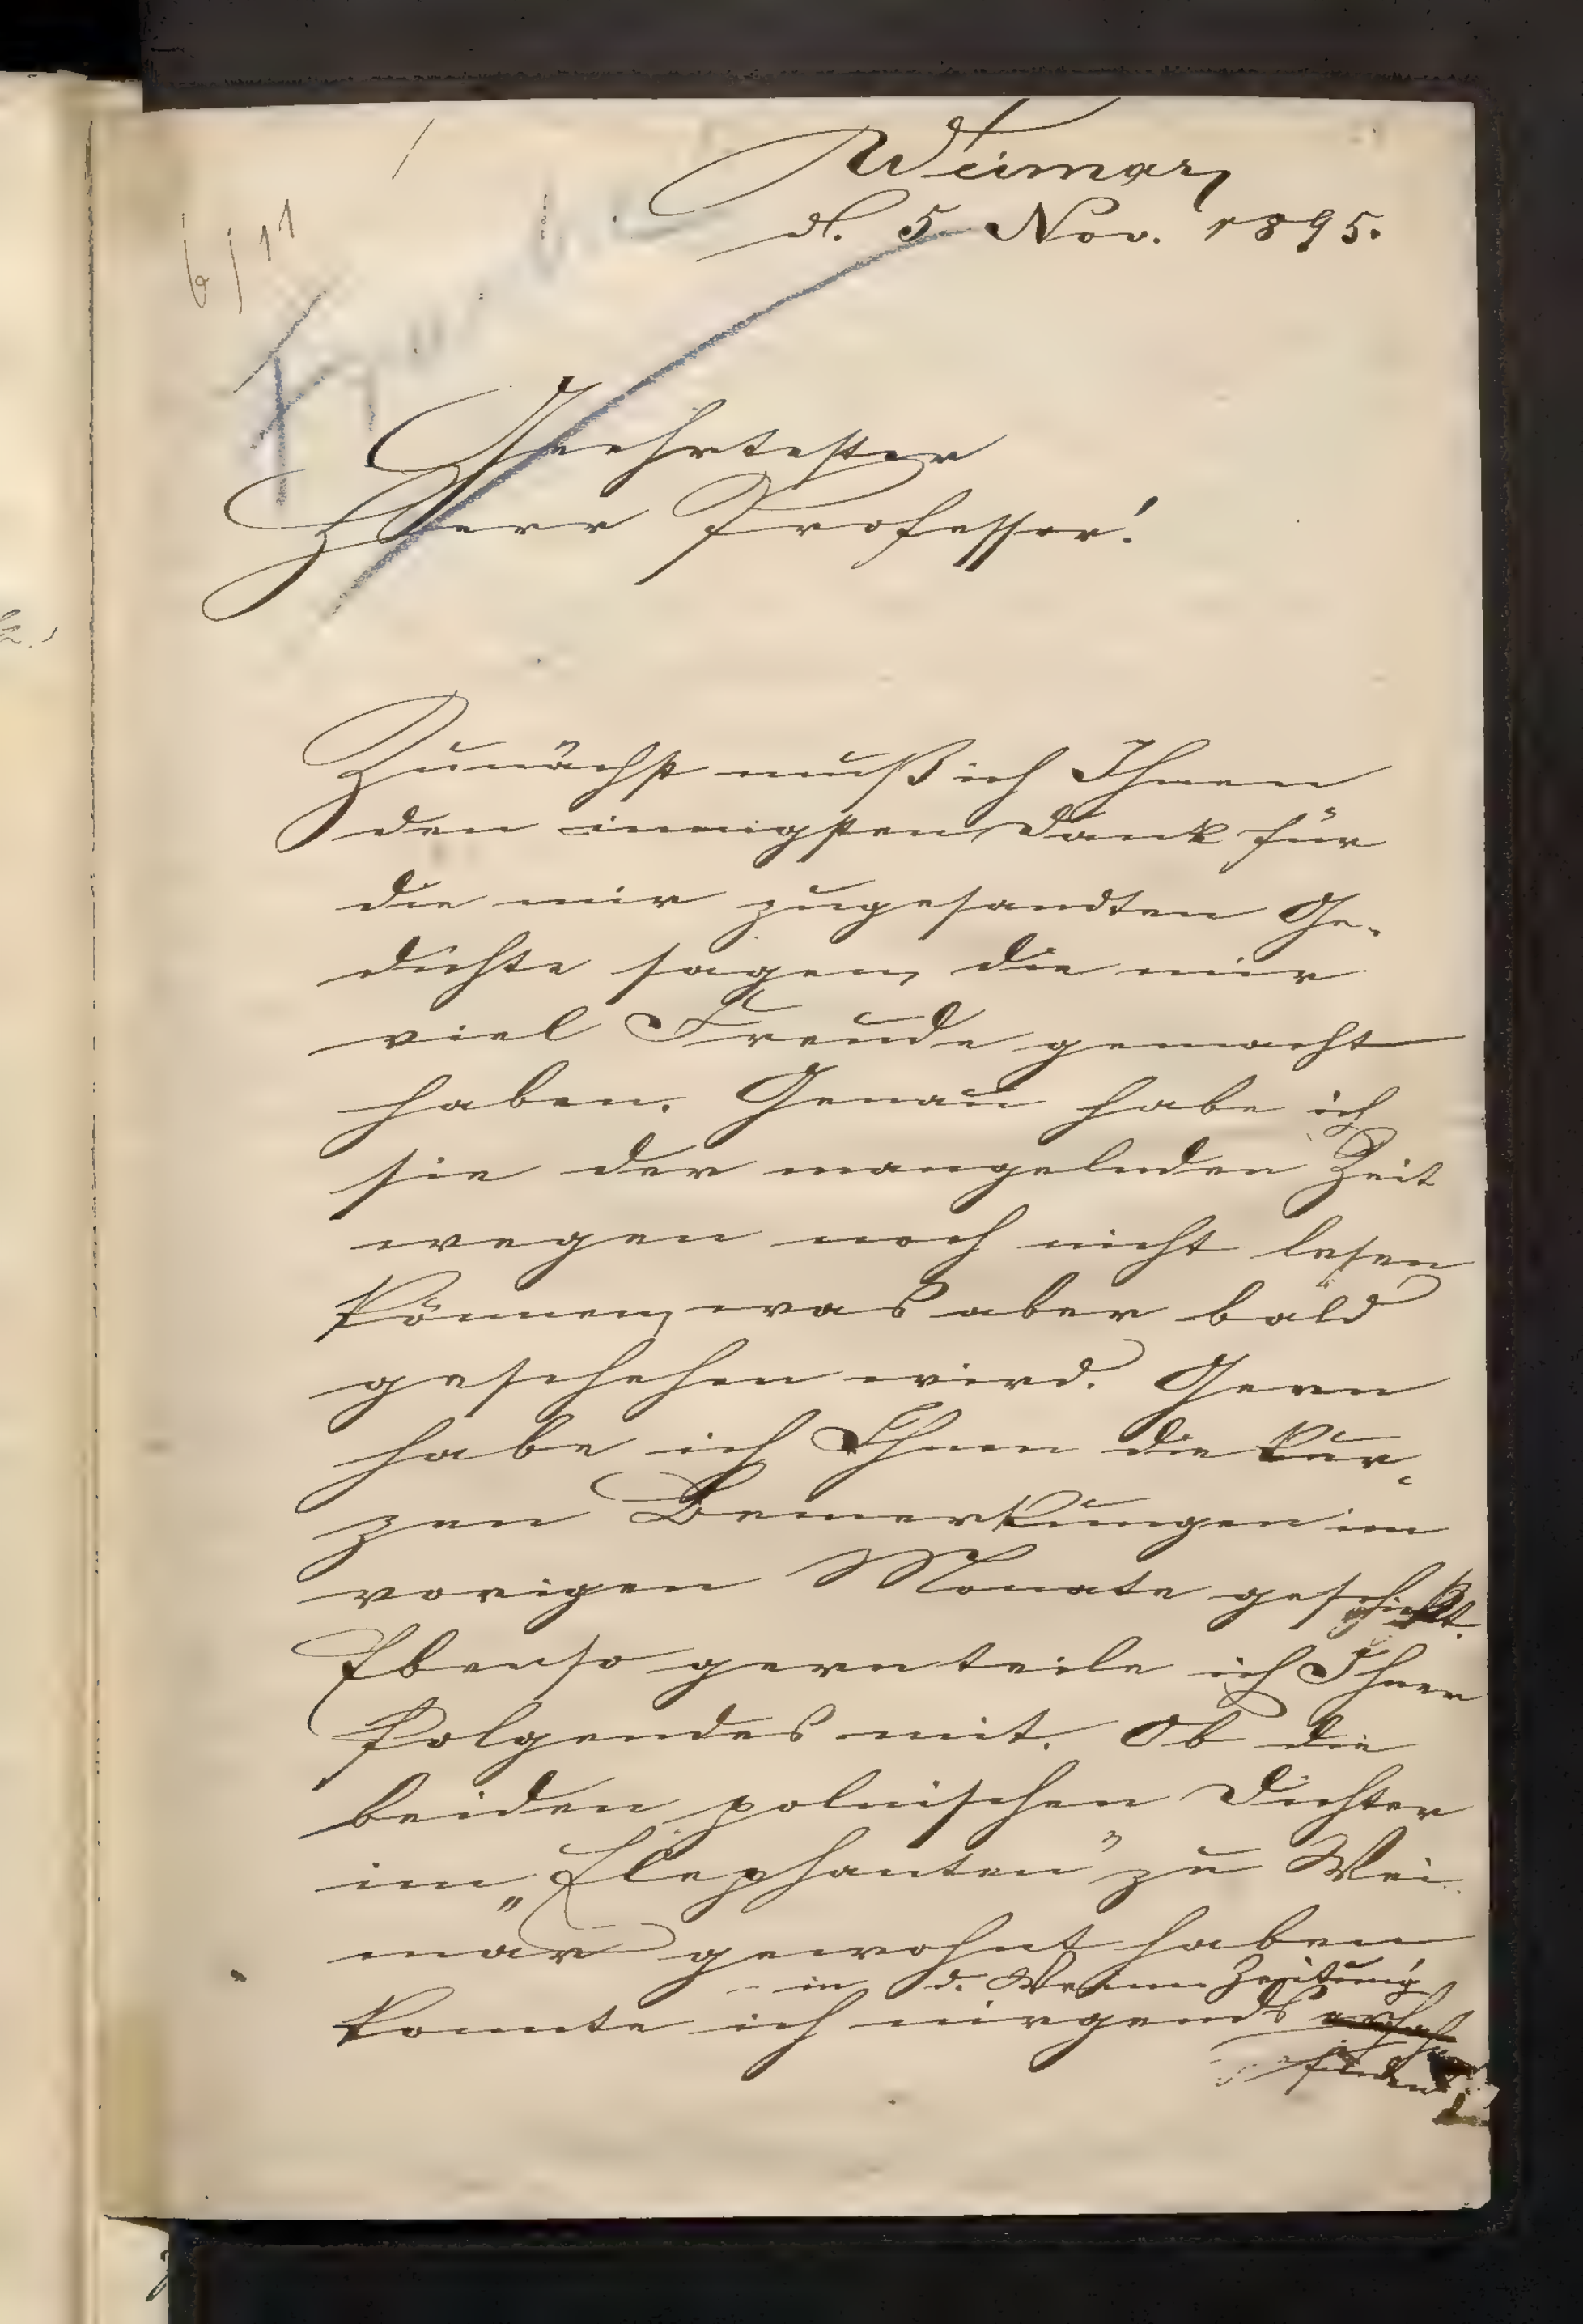 Weimar,
d. 5. Nov. 1895.
6/11
Geehrtester
Herr Professor!
Zunächst muß ich Ihnen
den innigsten Dank für
die mir zugesandten Ge-
dichte sagen, die mir
viel Freude gemacht
haben. Genau habe ich
sie der mangelnden Zeit
wegen noch nicht lesen
können, was aber bald
geschehen wird. Gern
habe ich Ihnen die kur-
zen Bemerkungen im
vorigen Monate geschickt.
Ebenso gern teile ich Ihnen
Folgendes mit. Ob die
beiden polnischen Dichter
im „Elephanten" zu Wei-
mar gewohnt haben
in d. Weim. Zeitung
konnte ich nirgends
finden